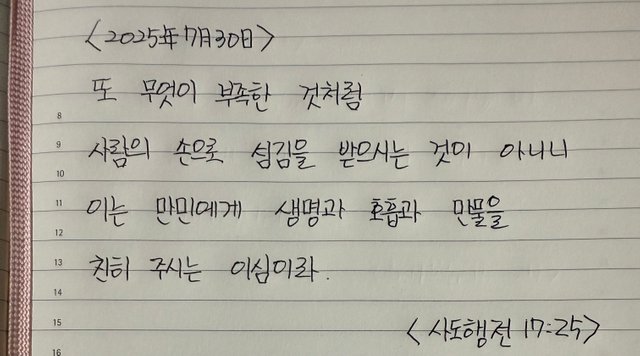 <2025年 7月 30日>
또 무엇이 부족한 것처럼
8
사람의 손으로 섬김을 받으시는 것이 아니니
9
10
이는 만민에게 생명과 호흡과 만물을
11
12
친히 주시는 이심이라.
13
14
<사도행전 17:25>
15
16